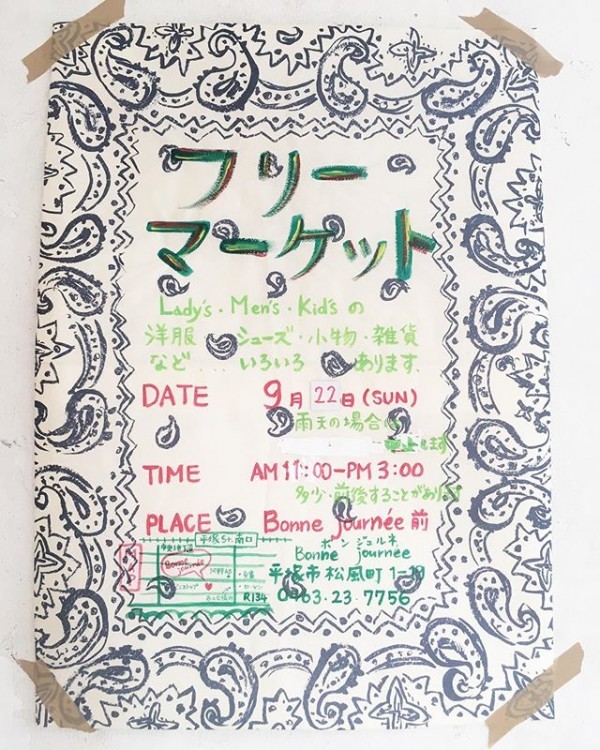 フリー
マーケット
Lady's・Men's・Kid'sの
洋服 シューズ・小物・雑貨
など....いろいろ あります.
DATE 9月22日(SUN)
雨天の場合は
します
TIME AM11:00-PM3:00
多少・前後することがあります
PLACE Bonne journée 前
平塚St.南口
MAP
Bonne journée
R134
ボン ジュルネ
Bonne journée
平塚市松風町1-
0463.23.7756